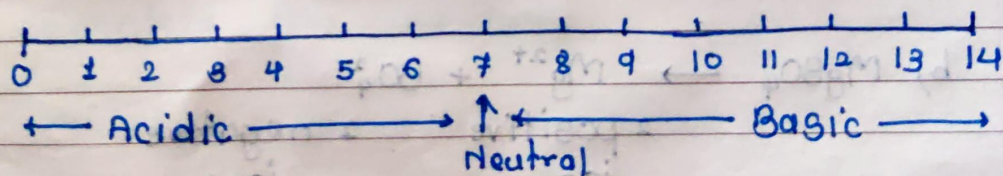 0 1 2 3 4 5 6 7 8 9 10 11 12 13 14
Acidic Basic
Neutral